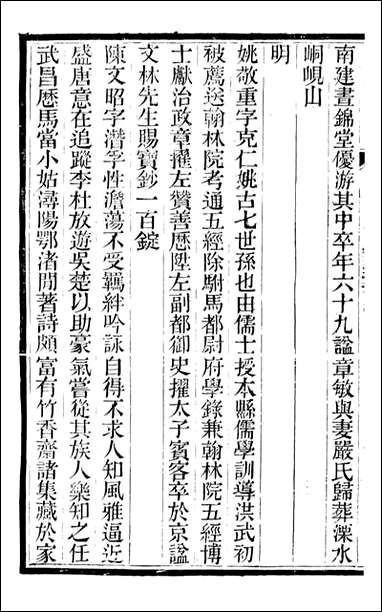 南建晝錦堂優游其中卒年六十九諡章敏與妻嚴氏歸葬溧水
峒峴山
明
姚敬重字克仁姚古七世孫也由儒士授本縣儒學訓導洪武初
被薦送翰林院考通五經除駙馬都尉府學錄兼翰林院五經博
士獻治政章擢左贊善歷陞左副都御史擢太子賓客卒於京諡
文林先生賜寶鈔一百錠
陳文昭字潛孚性澹蕩不受羈絆吟詠自得不求人知風雅逼近
盛唐意在追蹤李杜放遊吳楚以助豪氣嘗從其族人樂知之任
武昌歷馬當小姑潯陽鄂渚閒著詩頗富有竹香齋諸集藏於家